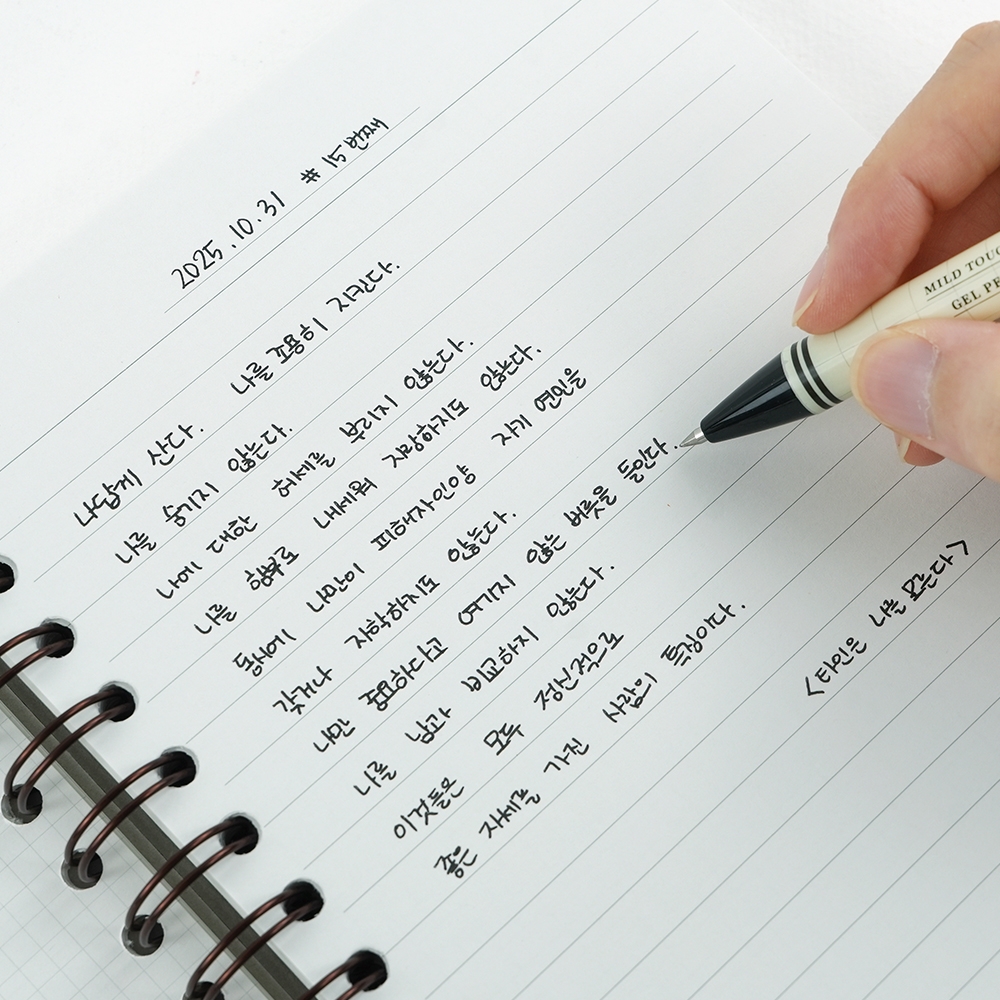 2025.10.31 #15번째
나답게 산다. 나를 조용히 지킨다.
나를 숨기지 않는다.
나에 대한 허세를 부리지 않는다.
나를 함부로 내세워 자랑하지도 않는다.
동시에 나만이 피해자인양 자기 연민을
갖거나 자학하지도 않는다.
나만 중요하다고 여기지 않는 버릇을 들인다.
나를 남과 비교하지 않는다.
이것들은 모두 정신적으로
좋은 자세를 가진 사람의 특징이다.
<타인은 나를 모른다>
MILD TOUC
GEL PE